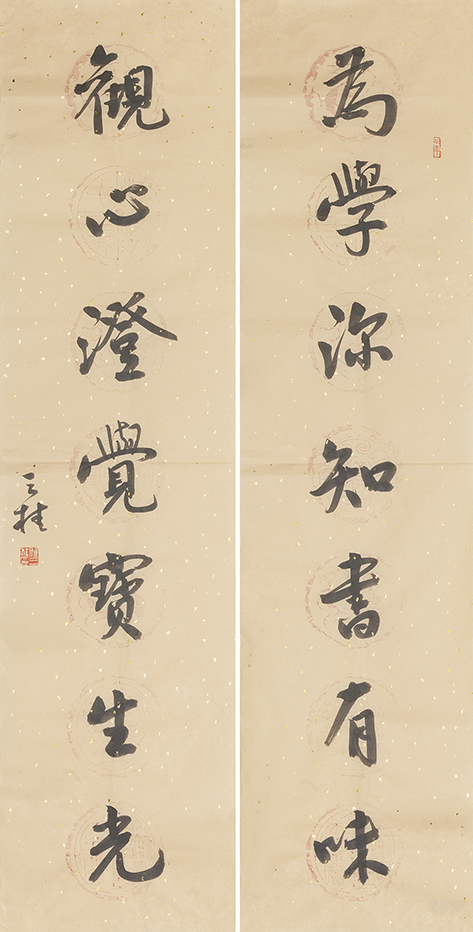 為學深知書有味
觀心澄覺寶生光